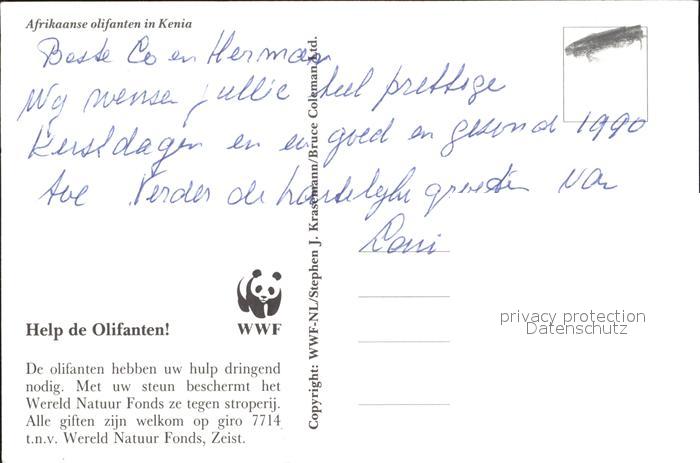 Afrikaanse olifanten in Kenia
Beste Co en Herman
Wij wensen jullie heel prettige
Kerstdagen en een goed en gezond 1990
toe Verder de hartelijke groeten van
Help de Olifanten!
WWF
De olifanten hebben uw hulp dringend
nodig. Met uw steun beschermt het
Wereld Natuur Fonds ze tegen stroperij.
Alle giften zijn welkom op giro 7714
t.n.v. Wereld Natuur Fonds, Zeist.
Copyright: WWF-NL/Stephen J. Krasemann/Bruce Coleman Ltd.
privacy protection
Datenschutz